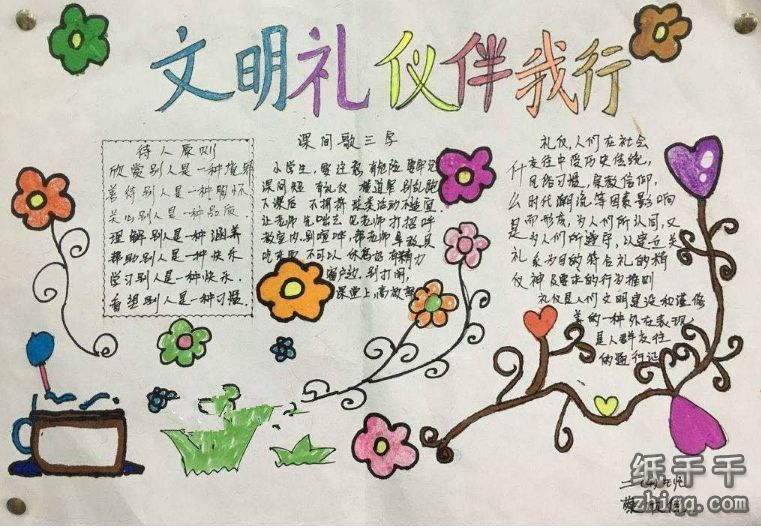 文明礼仪伴我行
待人原则
欣赏别人是一种
善待别人是一种胸怀
关心别人是一种品质
理解别人是一种涵养
帮助别人是一种快乐
学习别人是一种快乐
看望别人是一种习惯
课间歌三字
小学生,要注意,有危险要牢记
课间短 有礼仪 楼道里 别乱跑
下课后 不拥挤 球类活动不适宜
让老师先出去见老师打招呼
教室内,别喧哗,带老师
吃东西 不可以
窗户边,别打闹,
课堂上,高效
什么是礼仪
礼仪,人们在社会
交往中受历史传统,
风俗习惯,宗教信仰,
时代潮流等因素影响
而形成,为人们所认同,又
为人们所遵守,以建立关
系为目的符合礼的精
神及要求的行为准则
礼仪是人们文明
美的一种外在表现,
是人群
纸千千
zhiqq.com